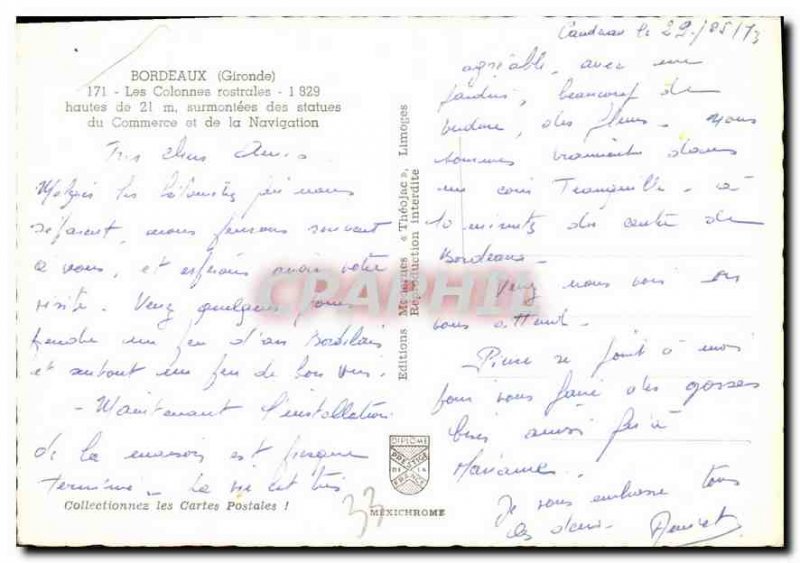 BORDEAUX (Gironde)
171 - Les Colonnes rostrales - 1829
hautes de 21 m, surmontées des statues
du Commerce et de la Navigation
Très chers Amis
Malgré les kilomètres qui nous
séparent, nous pensons souvent
à vous, et espérons avoir votre
visite. Venez quelques jours
prendre un peu d'air Bordelais
et surtout un peu de bon vin.
- Maintenant l'installation
de la maison est presque
terminée - La vie est très
Collectionnez les Cartes Postales !
33
Editions Modernes « Théojac », Limoges
Reproduction interdite
CPAPHIL
DIPLOME
PRESTIGE
DE LA
FRANCE
MEXICHROME
le 29/85/73
agréable, avec un
jardin, beaucoup de
verdure, des fleurs - Nous
sommes vraiment dans
un coin Tranquille - à
10 minutes du centre de
Bordeaux -
Venez nous voir on
vous attend.
Pierre se joint à moi
pour vous faire des grosses
bises aussi
Marianne.
Je vous embrasse tous
les deux.